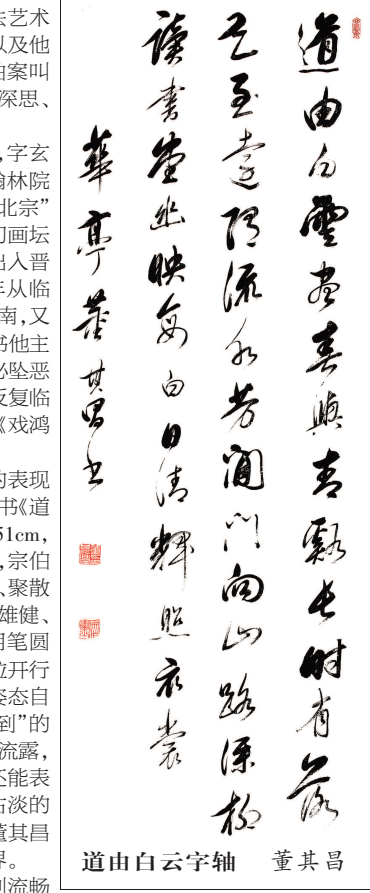 艺术
以及他
案叫
深思、
,字玄
翰林院
北宗”
画坛
出入晋
年从临
南,又
书他主
必坠恶
反复临
《戏鸿
的表现
书《道
51cm,
,宗伯
、聚散
雄健、
用笔圆
开行
姿态自
到”的
流露,
还能表
古淡的
董其昌
界。
流畅
道由白雲盡春與青谿長時有落
花至遠隨流水芳閒門向山路深柳
讀書堂幽映每白日清輝照衣裳
華亭董其昌書
道由白云字轴 董其昌